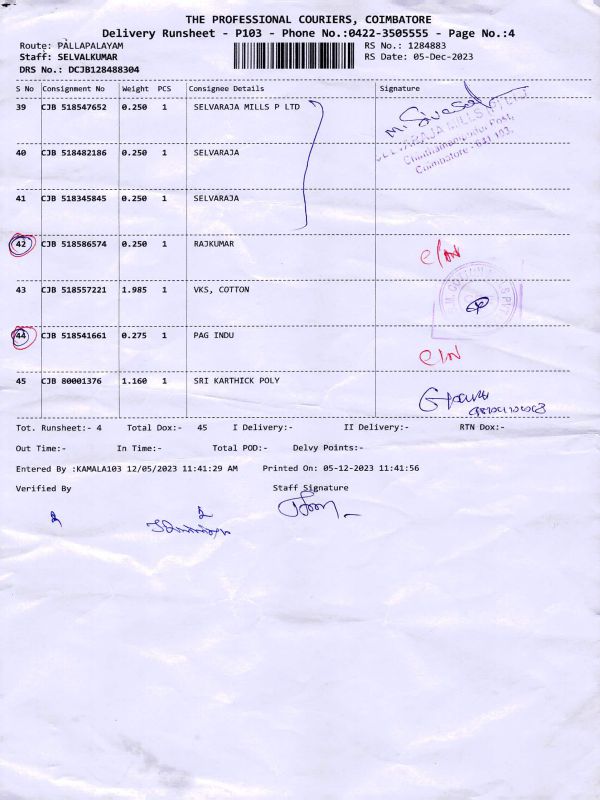 THE PROFESSIONAL COURIERS, COIMBATORE
Delivery Runsheet - P103 - Phone No.:0422-3505555 - Page No.:4
Route: PALLAPALAYAM RS No.: 1284883
Staff: SELVALKUMAR RS Date: 05-Dec-2023
DRS No.: DCJB128488304
S No Consignment No Weight PCS Consignee Details Signature
39 CJB 518547652 0.250 1 SELVARAJA MILLS P LTD
M. Sivasak
SELVARAJA MILLS P LTD
Chinthamanipudur Post,
Coimbatore - 641 103.
40 CJB 518482186 0.250 1 SELVARAJA
41 CJB 518345845 0.250 1 SELVARAJA
42 CJB 518586574 0.250 1 RAJKUMAR
43 CJB 518557221 1.985 1 VKS, COTTON
44 CJB 518541661 0.275 1 PAG INDU
45 CJB 80001376 1.160 1 SRI KARTHICK POLY
Tot. Runsheet:- 4 Total Dox:- 45 I Delivery:- II Delivery:- RTN Dox:-
Out Time:- In Time:- Total POD:- Delvy Points:-
Entered By :KAMALA103 12/05/2023 11:41:29 AM Printed On: 05-12-2023 11:41:56
Verified By Staff Signature